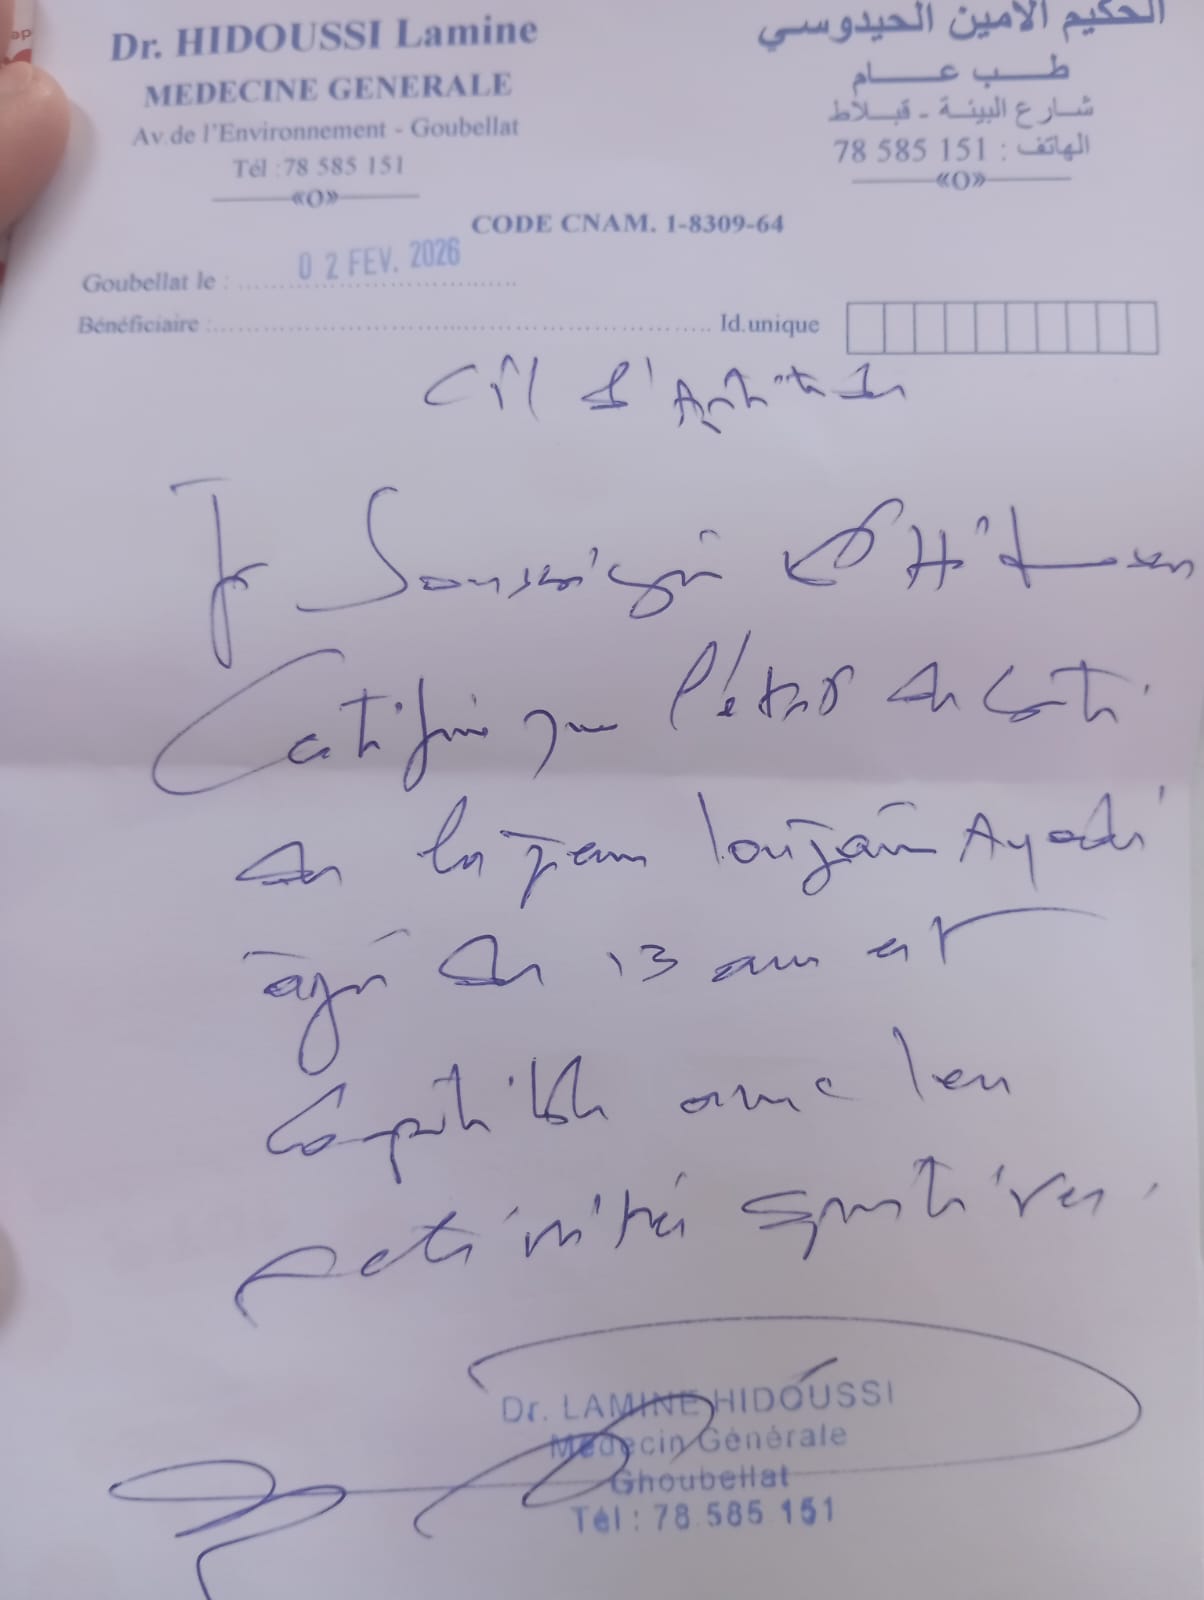 Dr. HIDOUSSI Lamine
MEDECINE GENERALE
Av.de l'Environnement - Goubellat
Tél :78 585 151
«O»
الحكيم الأمين الحيدوسي
طب عام
شارع البيئة - قبلاط
الهاتف : 151 585 78
«O»
CODE CNAM. 1-8309-64
Goubellat le : 02 FEV. 2026
Bénéficiaire : Id.unique
d'Aptitude
Je Soussigné Dr Hidoussi
Certifie que l'état de santé
de la jeune loujain Ayadi
âgé de 13 ans est
Compatible avec les
activités sportives.
Dr. LAMINE HIDOUSSI
Médecin Générale
Ghoubellat
Tél : 78 585 151